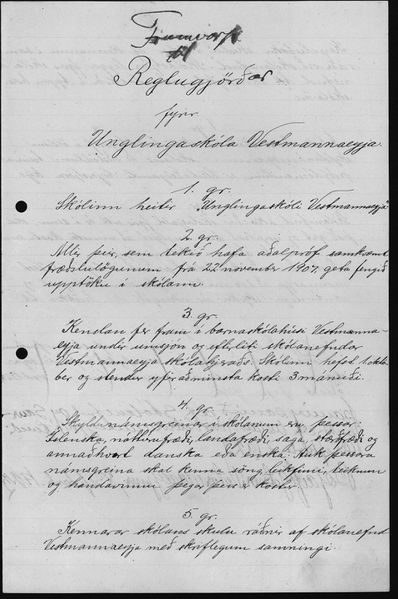 Frumvarp
til
Reglugjörðar
fyrir
Unglingaskóla Vestmannaeyja.
1. gr.
Skólinn heitir Unglingaskóli Vestmannaeyja
2. gr.
Allir þeir, sem tekið hafa aðalpróf samkvæmt
fræðslulögunum frá 22 november 1907, geta fengið
upptöku í skólann.
3. gr.
Kenslan fer fram í barnaskólahúsi Vestmanna-
eyja undir umsjón og eftirliti skólanefndar
Vestmannaeyja skólahjeraðs. Skólinn hefst 1. októ-
ber og stendur yfir að minsta kosti 3 mánuði.
4. gr.
Skyldunámsgreinar í skólanum eru þessar:
Íslenska, náttúrufræði, landafræði, saga, stærðfræði og
annaðhvort danska eða enska. Auk þessara
námsgreina skal kenna söng, leikfimi, teiknun
og handavinnu þegar þess er kostur.
5 gr.
Kennarar skólans skulu ráðnir af skólanefnd
Vestmannaeyja með skriflegum samningi.